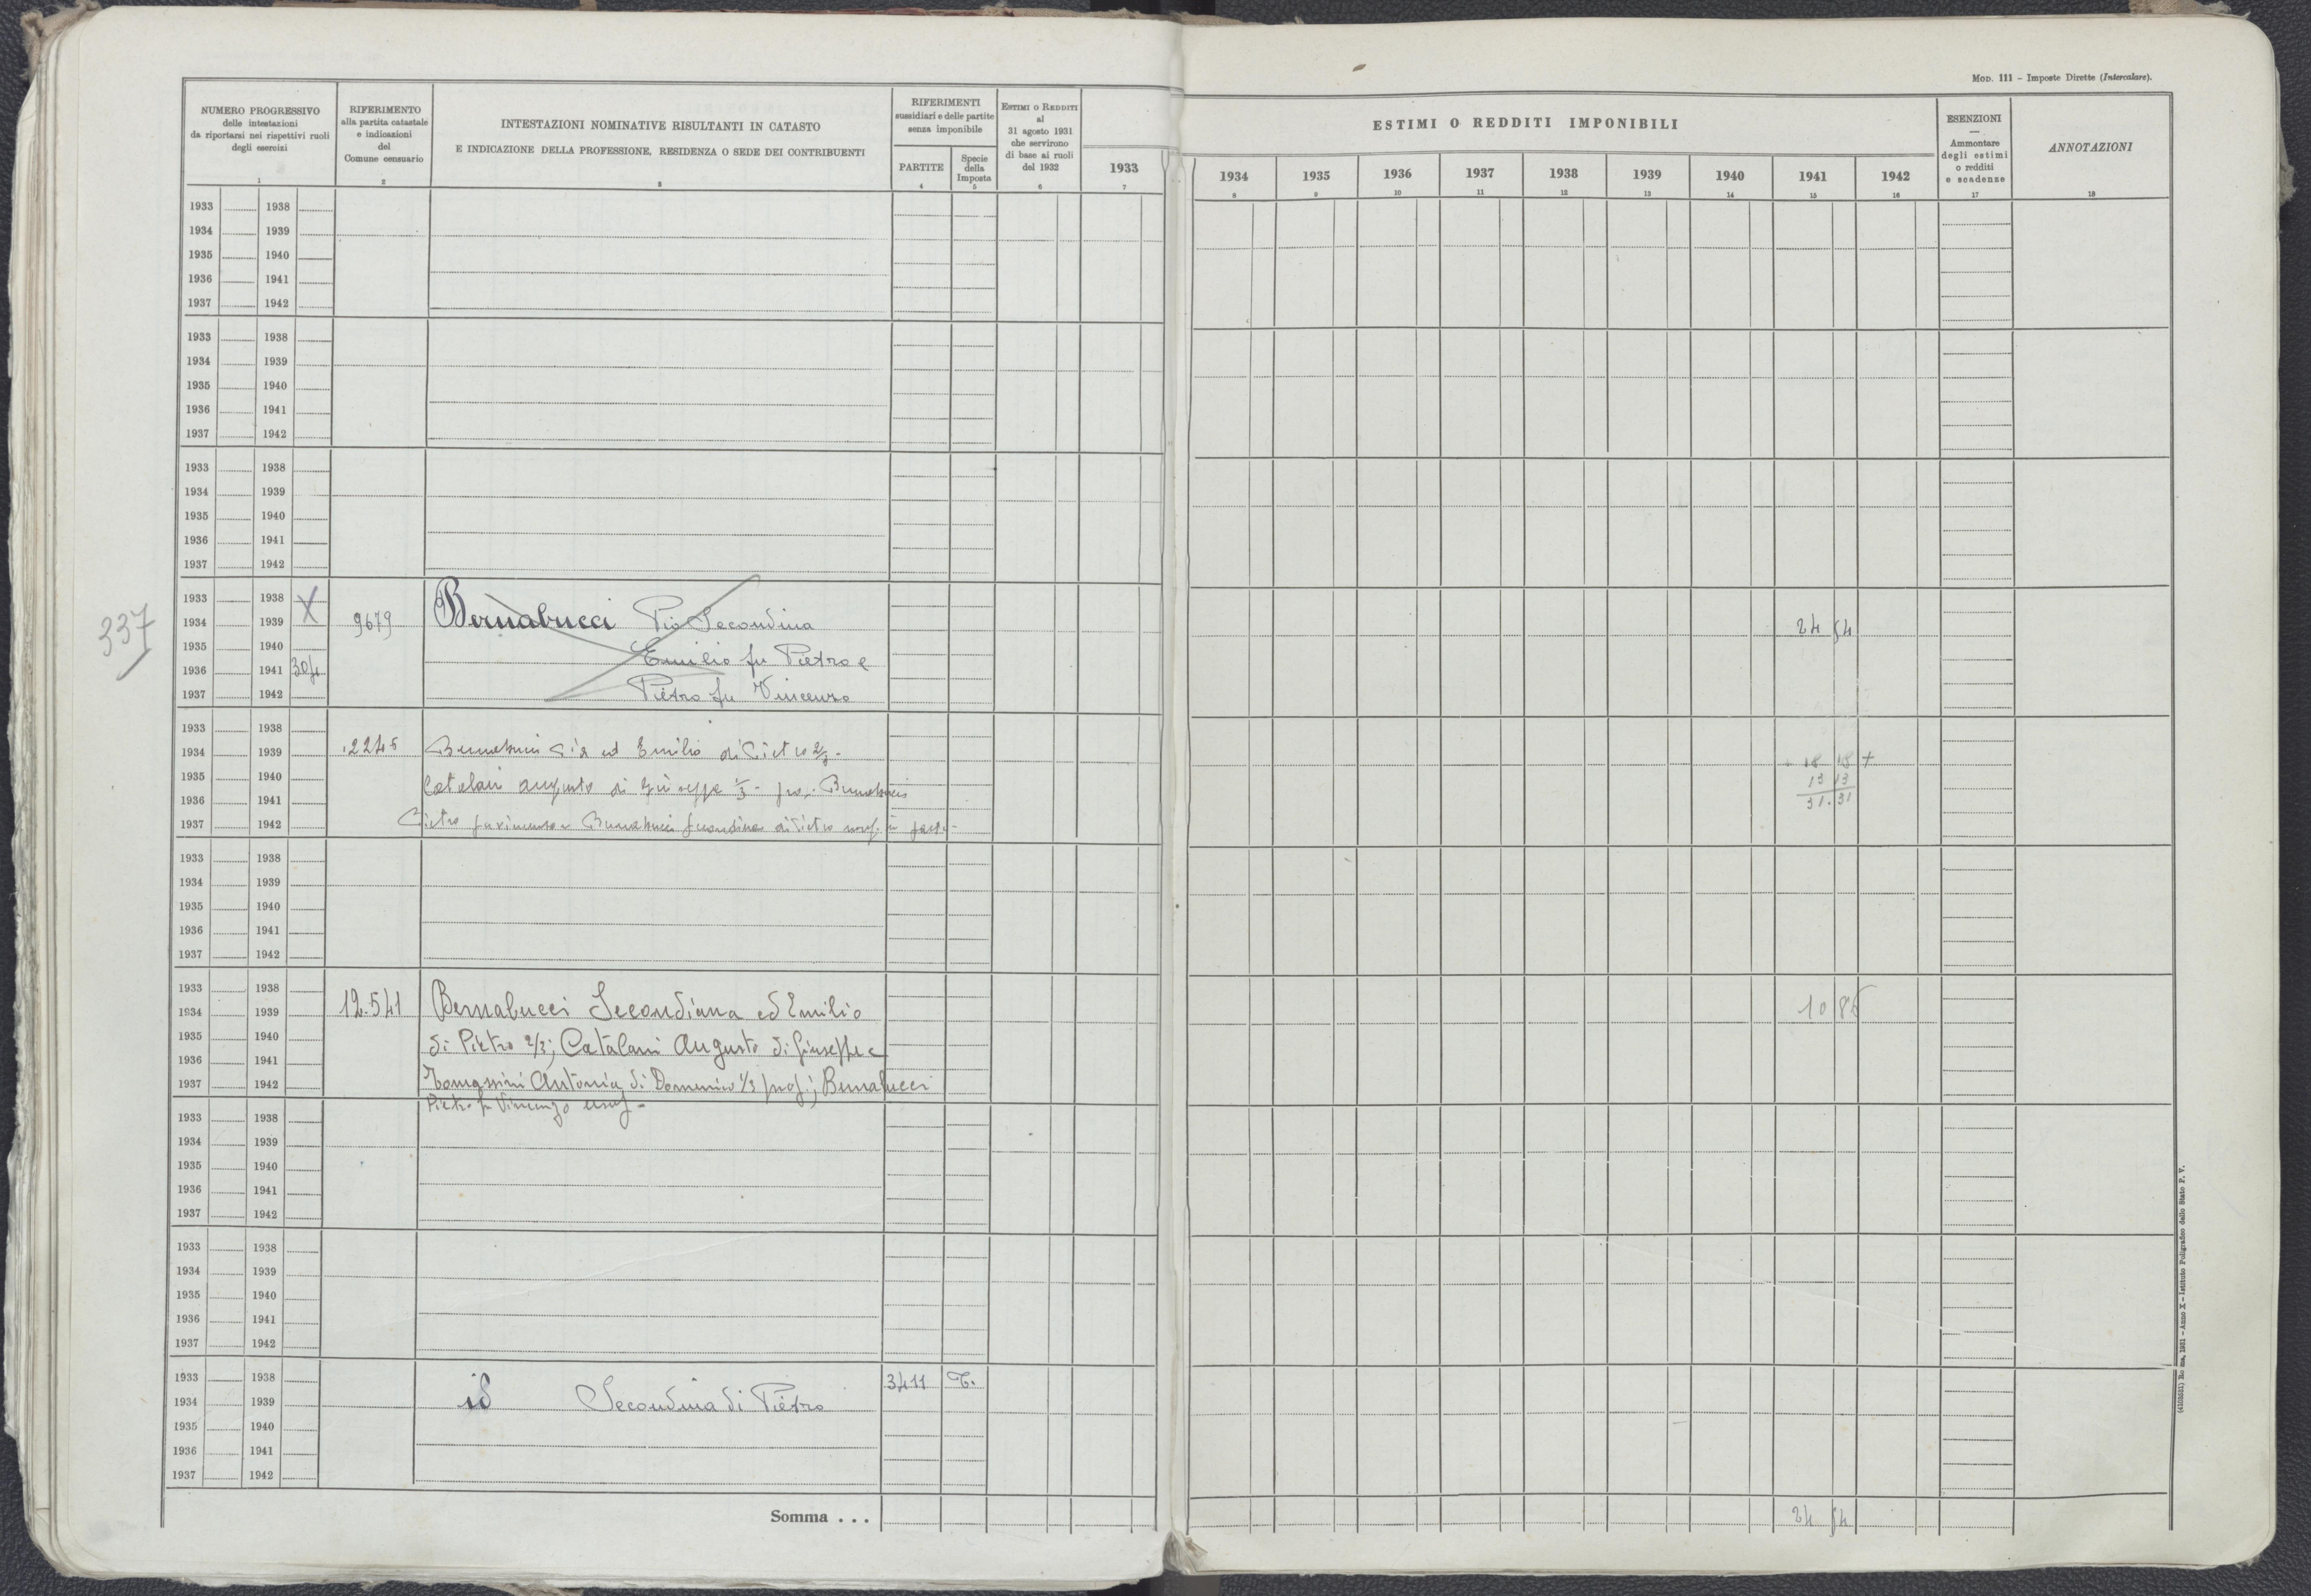 MOD. 111 – Imposte Dirette (Intercalare).
NUMERO PROGRESSIVO
delle intestazioni
da riportarsi nei rispettivi ruoli
degli esercizi
1
RIFERIMENTO
alla partita catastale
e indicazioni
del
Comune censuario
2
INTESTAZIONI NOMINATIVE RISULTANTI IN CATASTO
E INDICAZIONE DELLA PROFESSIONE, RESIDENZA O SEDE DEI CONTRIBUENTI
3
RIFERIMENTI
sussidiari e delle partite
senza imponibile
PARTITE
4
Specie
della
Imposta
5
ESTIMI O REDDITI
al
31 agosto 1931
che servirono
di base ai ruoli
del 1932
6
1933
7
ESTIMI O REDDITI IMPONIBILI
1934 1935 1936 1937 1938 1939 1940 1941 1942
8 9 10 11 12 13 14 15 16
ESENZIONI
—
Ammontare
degli estimi
o redditi
e scadenze
17
ANNOTAZIONI
18
1933 1938
1934 1939
1935 1940
1936 1941
1937 1942
1933 1938
1934 1939
1935 1940
1936 1941
1937 1942
1933 1938
1934 1939
1935 1940
1936 1941
1937 1942
337
1933 1938 X
1934 1939 9679 Bernabucci Pio Secondina 24 54
1935 1940 Emilio fu Pietro e
1936 1941 304
1937 1942 Pietro fu Vincenzo
1933 1938
1934 1939 2245 ed Emilio di Pietro 2/3 - 18 18 +
1935 1940 Catalani Augusto di Giuseppe 1/3 - 13 13
1936 1941 31.31
1937 1942 Pietro fu Vincenzo
1933 1938
1934 1939
1935 1940
1936 1941
1937 1942
1933 1938
1934 1939 12.541 Bernabucci Secondiana ed Emilio 10 86
1935 1940 di Pietro 2/3; Catalani Augusto di Giuseppe e
1936 1941
1937 1942 Tomassini Antonia di Domenico 1/3 prop.; Bernabucci
Pietro fu Vincenzo usuf -
1933 1938
1934 1939
1935 1940
1936 1941
1937 1942
1933 1938
1934 1939
1935 1940
1936 1941
1937 1942
1933 1938 3411 T.
1934 1939 id Secondina di Pietro
1935 1940
1936 1941
1937 1942
Somma . . . 24 54
(4103631) Roma, 1931 – Anno X – Istituto Poligrafico dello Stato P. V.